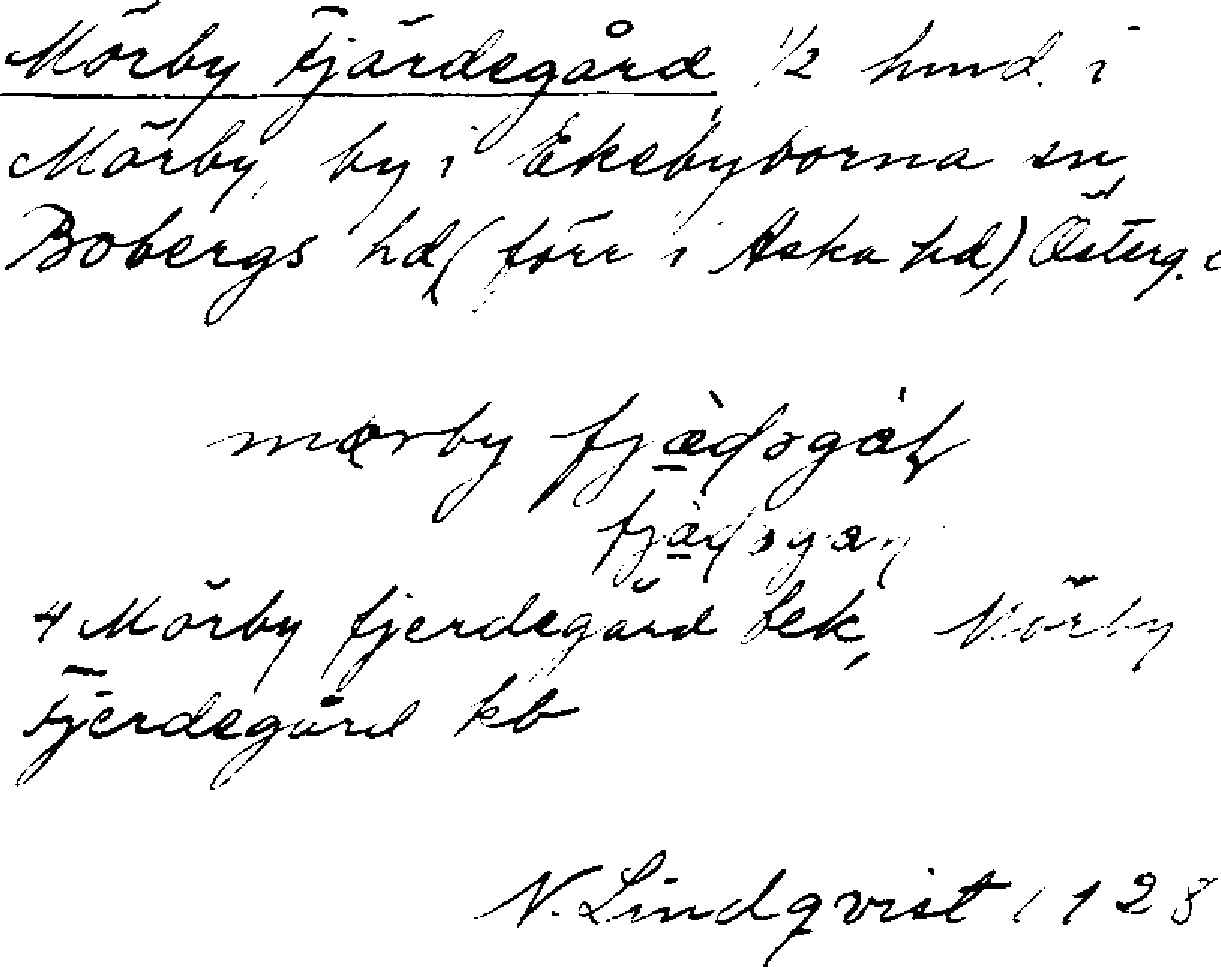 Mörby Fjärdegård, 1/2 hmd. i
Mörby, by i Ekebyborna sn,
Bobergs hd (förr i Aska hd), Österg.
mœrby
4 Mörby fjerdegård Jek, Mörby
Fjerdegård kb
N. Lindqvist 1928